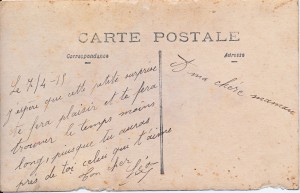 CARTE POSTALE
Correspondance
Adresse
Le 7/4-15
J'espère que cette petite surprise
te fera plaisir et te fera
trouver le temps moins
long, puisque tu auras
près de toi celui qui t'aime
Ton cher
A ma chère maman